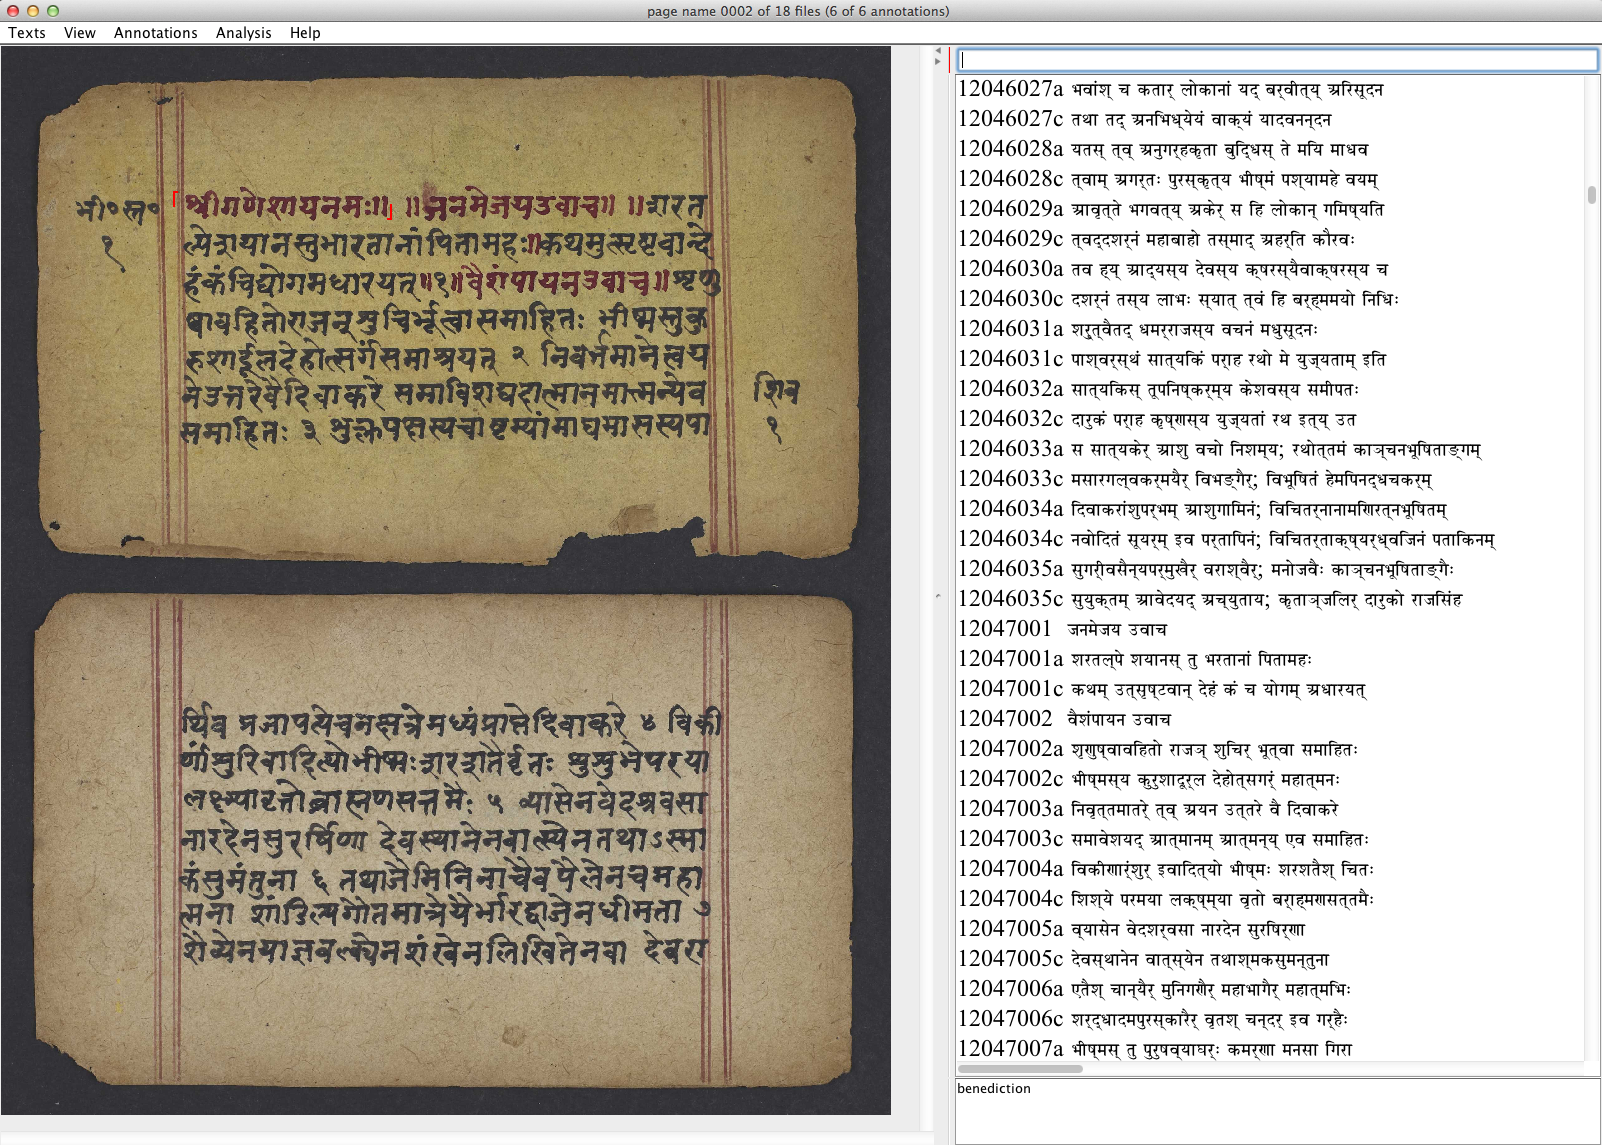 page name 0002 of 18 files (6 of 6 annotations)
Texts View Annotations Analysis Help
भी०स्त०
१
श्रीगणेशायनमः॥ ॥जनमेजयउवाच॥ ॥शरत
ल्पेशयानस्तुभारतानांपितामहः॥कथमुत्सृष्टवान्दे
हंकंचिद्योगमधारयत्॥१॥वैशंपायनउवाच॥शृणु
ष्वावहितोराजन्शुचिर्भूत्वासमाहितः भीष्मस्तुकु
रुशार्दूलदेहोत्सर्गंसमाश्रयत् २ निवर्त्तमानेत्वय
नेउत्तरेवैदिवाकरे समाविशद्यदात्मानमात्मन्येव
शिव
समाहितः ३ शुक्लपक्षस्यचाष्टम्यांमाघमासस्यपा
१
र्थिव प्रजापत्येचनक्षत्रेमध्यंप्राप्तेदिवाकरे ४ विकी
र्णांशुरिवादित्योभीष्मःशरशतैर्वृतः शुशुभेपरया
लक्ष्म्यावृतोब्राह्मणसत्तमैः ५ व्यासेनवेदश्रवसा
नारदेनसुरर्षिणा देवस्थानेनवात्स्येनतथाऽस्मा
कंसुमंतुना ६ तथाजैमिनिनाचैवपैलेनचमहा
त्मना शांडिल्यगौतमात्रेयैर्भारद्वाजेनधीमता ७
शैव्येनयाज्ञवल्क्येनशंखेनलिखितेनवा देवरा
12046027a भवांश् च कतार् लोकानां यद् बर्वीत्य् अरिसूदन
12046027c तथा तद् अनभिध्येयं वाक्यं यादवनन्दन
12046028a यतस् त्व् अनुगर्हकृता बुद्धिस् ते मयि माधव
12046028c त्वाम् अगर्तः पुरस्कृत्य भीष्मं पश्यामहे वयम्
12046029a आवृत्ते भगवत्य् अकेर् स हि लोकान् गमिष्यति
12046029c त्वद्दशर्नं महाबाहो तस्माद् अहर्ति कौरवः
12046030a तव ह्य् आद्यस्य देवस्य क्षरस्यैवाक्षरस्य च
12046030c दशर्नं तस्य लाभः स्यात् त्वं हि बर्ह्ममयो निधिः
12046031a शर्त्वैतद् धमर्राजस्य वचनं मधुसूदनः
12046031c पाश्वर्स्थं सात्यकिं पर्ाह रथो मे युज्यताम् इति
12046032a सात्यकिस् तूपनिष्कर्म्य केशवस्य समीपतः
12046032c दारुकं पर्ाह कृष्णस्य युज्यतां रथ इत्य् उत
12046033a स सात्यकेर् आशु वचो निशम्य; रथोत्तमं काञ्चनभूषिताङ्गम्
12046033c मसारगल्वकर्मयैर् विभङ्गैर्; विभूषितं हेमपिनद्धचकर्म्
12046034a दिवाकरांशुपर्भम् आशुगामिनं; विचितर्नानामणिरत्नभूषितम्
12046034c नवोदितं सूयर्म् इव पर्तापिनं; विचितर्ताक्ष्यर्ध्वजिनं पताकिनम्
12046035a सुगर्ीवसैन्यपर्मुखैर् वराश्वैर्; मनोजवैः काञ्चनभूषिताङ्गैः
12046035c सुयुक्तम् आवेदयद् अच्युताय; कृताञ्जलिर् दारुको राजसिंह
12047001 जनमेजय उवाच
12047001a शरतल्पे शयानस् तु भरतानां पितामहः
12047001c कथम् उत्सृष्टवान् देहं कं च योगम् अधारयत्
12047002 वैशंपायन उवाच
12047002a शृणुष्वावहितो राजञ् शुचिर् भूत्वा समाहितः
12047002c भीष्मस्य कुरुशादूर्ल देहोत्सगरं महात्मनः
12047003a निवृत्तमातरे त्व् अयन उत्तरे वै दिवाकरे
12047003c समावेशयद् आत्मानम् आत्मन्य् एव समाहितः
12047004a विकीणारंशुर् इवादित्यो भीष्मः शरशतैश् चितः
12047004c शिश्ये परमया लक्ष्म्या वृतो बर्ाह्मणसत्तमैः
12047005a व्यासेन वेदशर्वसा नारदेन सुरषिर्णा
12047005c देवस्थानेन वात्स्येन तथाश्मकसुमन्तुना
12047006a एतैश् चान्यैर् मुनिगणैर् महाभागैर् महात्मभिः
12047006c शर्द्धादमपुरस्कारैर् वृतश् चन्दर् इव गर्हैः
12047007a भीष्मस् तु पुरुषव्याघर्ः कमर्णा मनसा गिरा
benediction